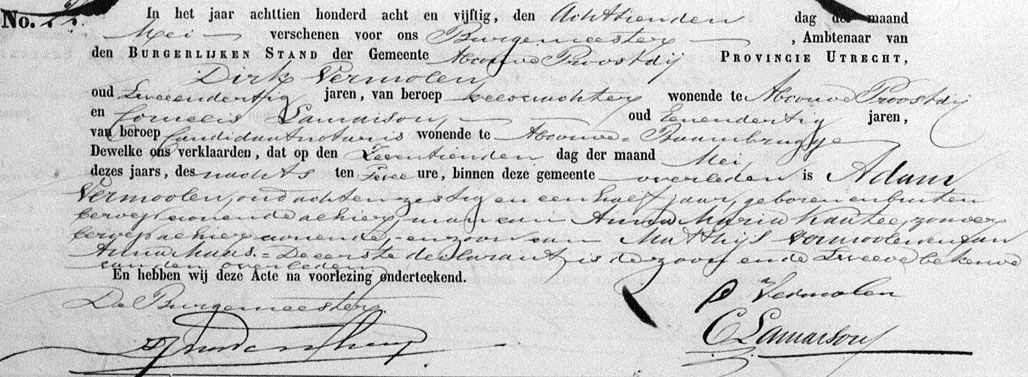 No. In het jaar achttien honderd acht en vijftig, den Achttienden dag der maand
Mei verschenen voor ons Burgemeester, Ambtenaar van
den BURGERLIJKEN STAND der Gemeente Abcoude Proostdij PROVINCIE UTRECHT,
Dirk Vermolen,
oud Tweeendertig jaren, van beroep wonende te Abcoude Proostdij
en Cornelis Lamaison, oud Eenendertig jaren,
van beroep Candidaatnotaris wonende te Abcoude Baambrugge
Dewelke ons verklaarden, dat op den Zeventienden dag der maand Mei
dezes jaars, des nachts ten Twee ure, binnen deze gemeente overleden is Adam
Vermoolen, oud achtenzestig en een half jaar, geboren en buiten
beroep wonende alhier, man van Anna Maria Kautee, zonder
beroep alhier wonende, en zoon van Matthijs Vermoolen en van
Anna Maas. = De eerste declarant is de zoon en de Tweede bekende
van den overleden
En hebben wij deze Acte na voorlezing onderteekend.
De Burgemeester
D Vermolen
C Lamaison